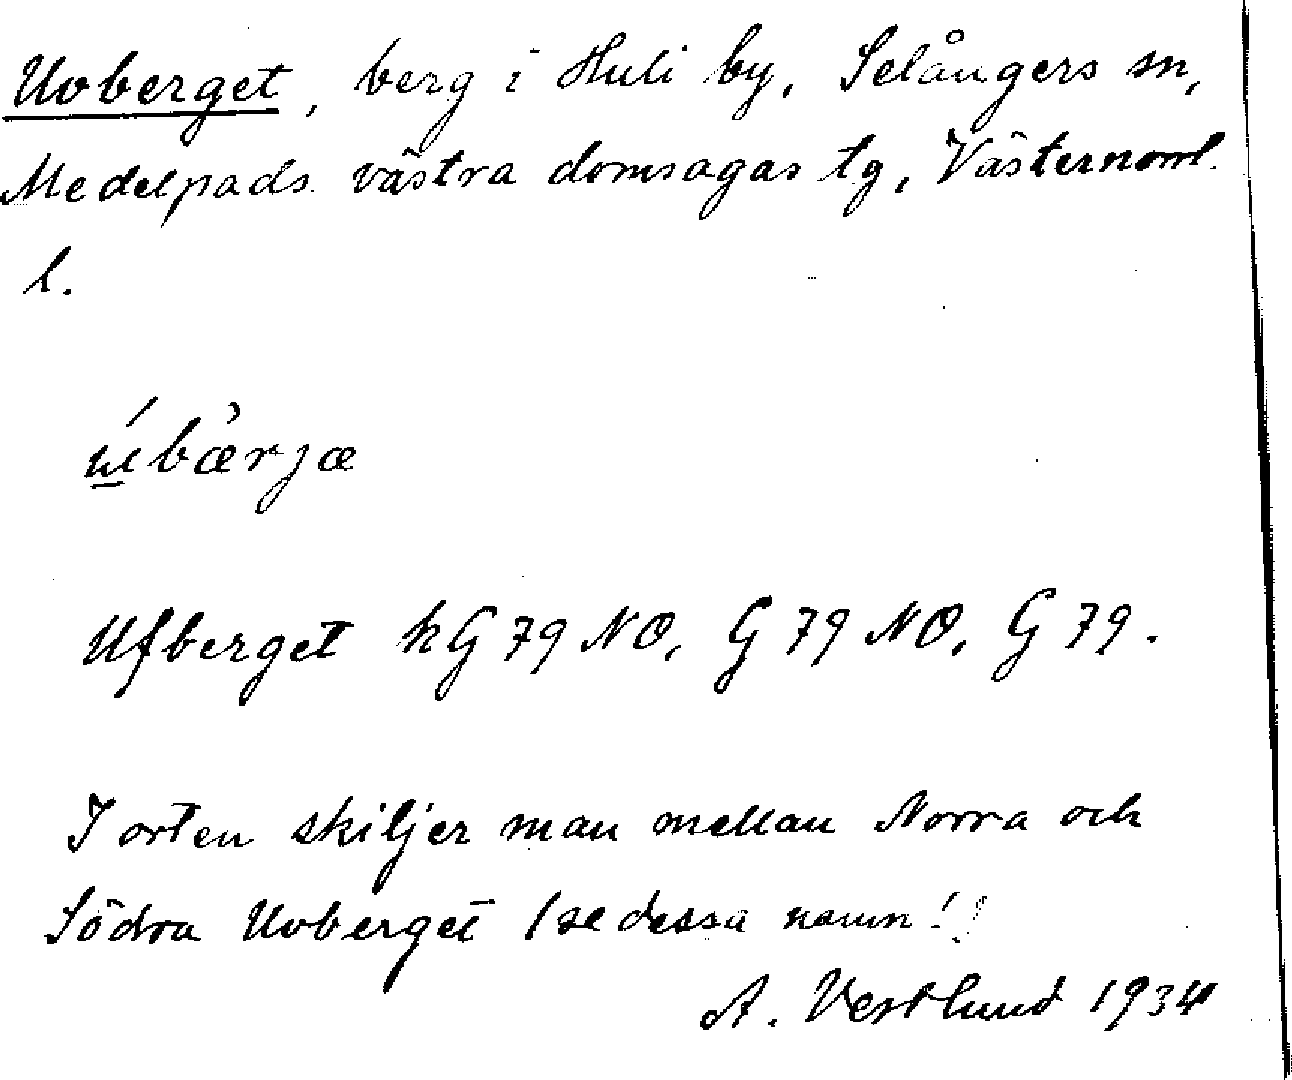 Uvberget, berg i Huli by, Selångers sn,
Medelpads västra domsagas tg, Västernorrl.
l.
Ufberget kG 79 NO, G 79 NO, G 79.
I orten skiljer man mellan Norra och
Södra Uvberget (se dessa namn!)
A. Vestlund 1934